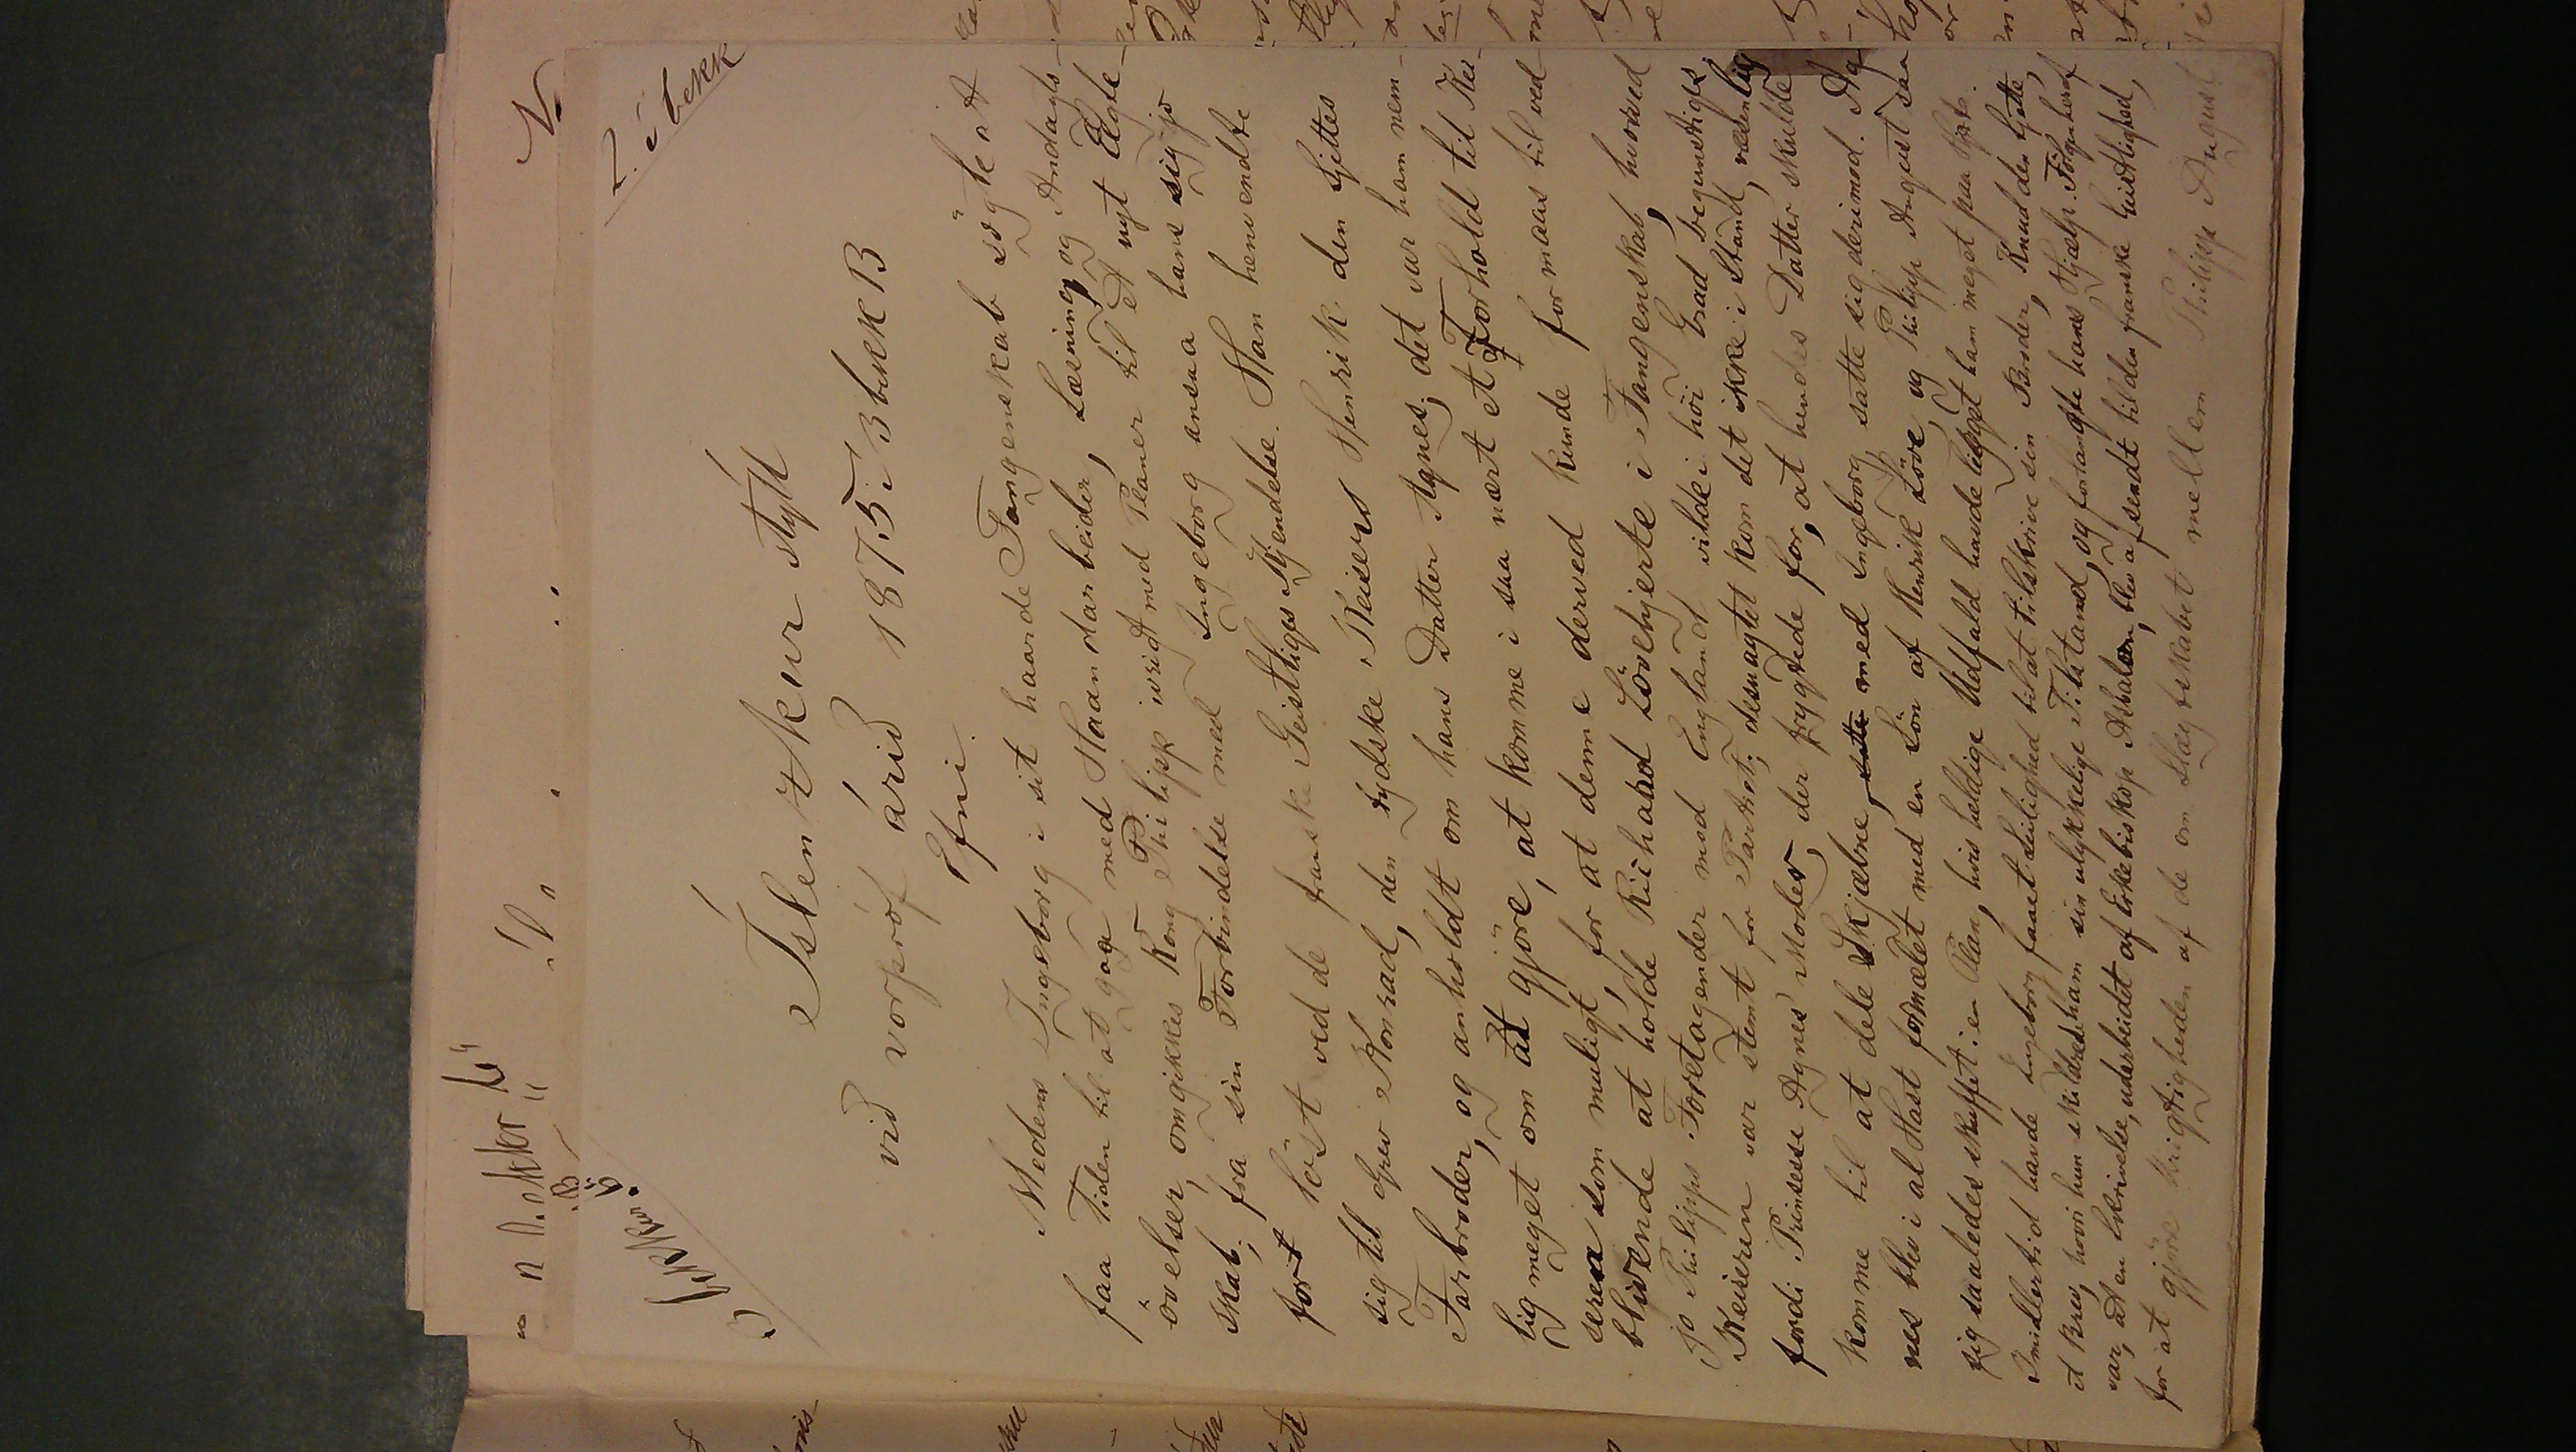 2. í bekk
Íslenzkur stýll
við vorpróf árið 1875 í 3 bekk B
Efni.
Medens Ingeborg i sit haarde Fangenskab sögte at
faa Tiden til at gaa med Haandarbeider, Læsning og Andagts-
övelser, omgikkes Kong Philipp ivrigt med Planer til et nyt Ægte-
skab; fra sin Forbindelse med Ingeborg ansaa hans sig jo
fort löst ved de franske Geistliges Kjendelse. Han henvendte
sig til Grev Konrad, den tydske Keisers Henrik den Sjettes
Farbroder, og anholdt om hans Datter Agnes; det var ham nem-
lig meget om at gjöre, at komme i saa nært et Forhold til Kei-
seren som muligt, for at denne derved kunde formaas til ved-
blivende at holde Richard Lövehjerte i Fangenskab, hvorved
jo Philipps Foretagender mod England vilde i höi Grad begunstiges.
Keiseren var stemt for Partiet; desuagtet kom det ikke i Stand, væsenlig
fordi Prinsesse Agnes' Moder, der frygtede for, at hendes Datter skulde
komme til at dele Skjæbne, med Ingeborg, satte sig derimod. Ag-
nes blev i al Hast formælet med en Sön af Henrik Löve, og Philipp August saa
sig saaledes skuffet i en Plan, hvis heldige Udfald havde ligget ham meget paa Hjerte.
Imidlertid havde Ingeborg faaet Leilighed til at tilskrive sin Broder, Knud den Sjette,
et Brev, hvori hun skildrede ham sin ulykkelige Tilstand, og forlangte hans Hjælp. Fölgen heraf
var, at en Skrivelse, udarbeidet af Erkebiskop Absalon, blev afsendt til den franske Geistlighed,
for at gjöre Urigtigheden af de om Slægtskabet mellem Philipp August